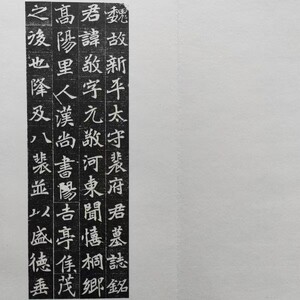 魏故新平太守裴府君墓誌銘
君諱敬字元敬河東聞憘桐鄉
高陽里人漢尚書陽吉亭侯茂
之後也降及八裴並以盛德垂